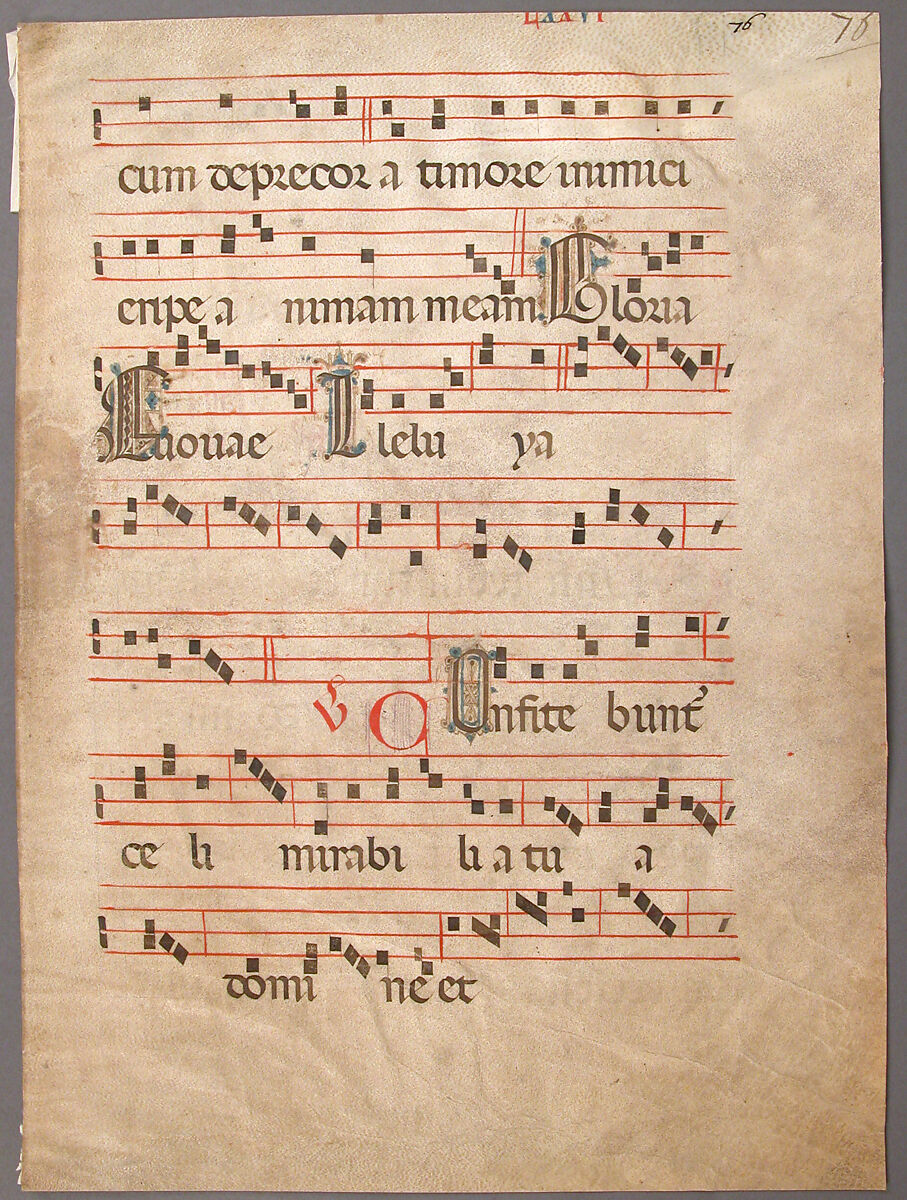 LXXVI 76 76
cum deprecor a timore inimici
eripe a nimam meam Gloria
Euouae Alleluya
℣ O Confite bunt᷒
ce li mirabi li a tu a
domi ne et